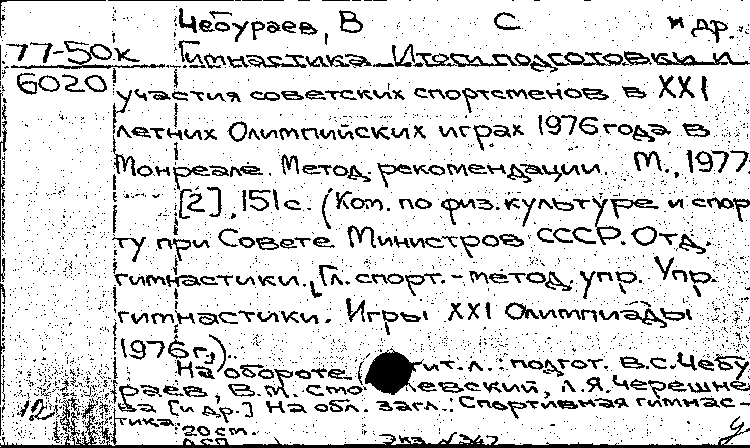 Чебураев, В С и др.
77-50к Гимнастика. Итоги подготовки и
6020 участия советских спортсменов в XXI
летних Олимпийских играх 1976 года в
Монреале. Метод. рекомендации. М., 1977.
[2], 151 с. (Ком. по физ. культуре и спор
ту при Совете Министров СССР. Отд.
гимнастики. Гл. спорт.-метод. упр. Упр.
гимнастики. Игры XXI Олимпиады
1976 г.).
На обороте тит. л.: подгот. В.С. Чебу
раев, В.М. Л.Я. Черешне
ва [и др.] На обл. загл.: Спортивная гимнас-
12 тика.
20 см.
Экз. № 347